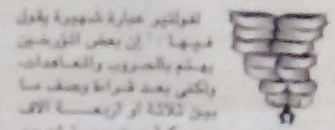 لفولتير عبارة شهيرة يقول
فيها : " إن بعض المؤرخين
يهتم بالحروب والمعاهدات،
ولكنى بعد قراءة وصف ما
بين ثلاثة أو أربعة آلاف